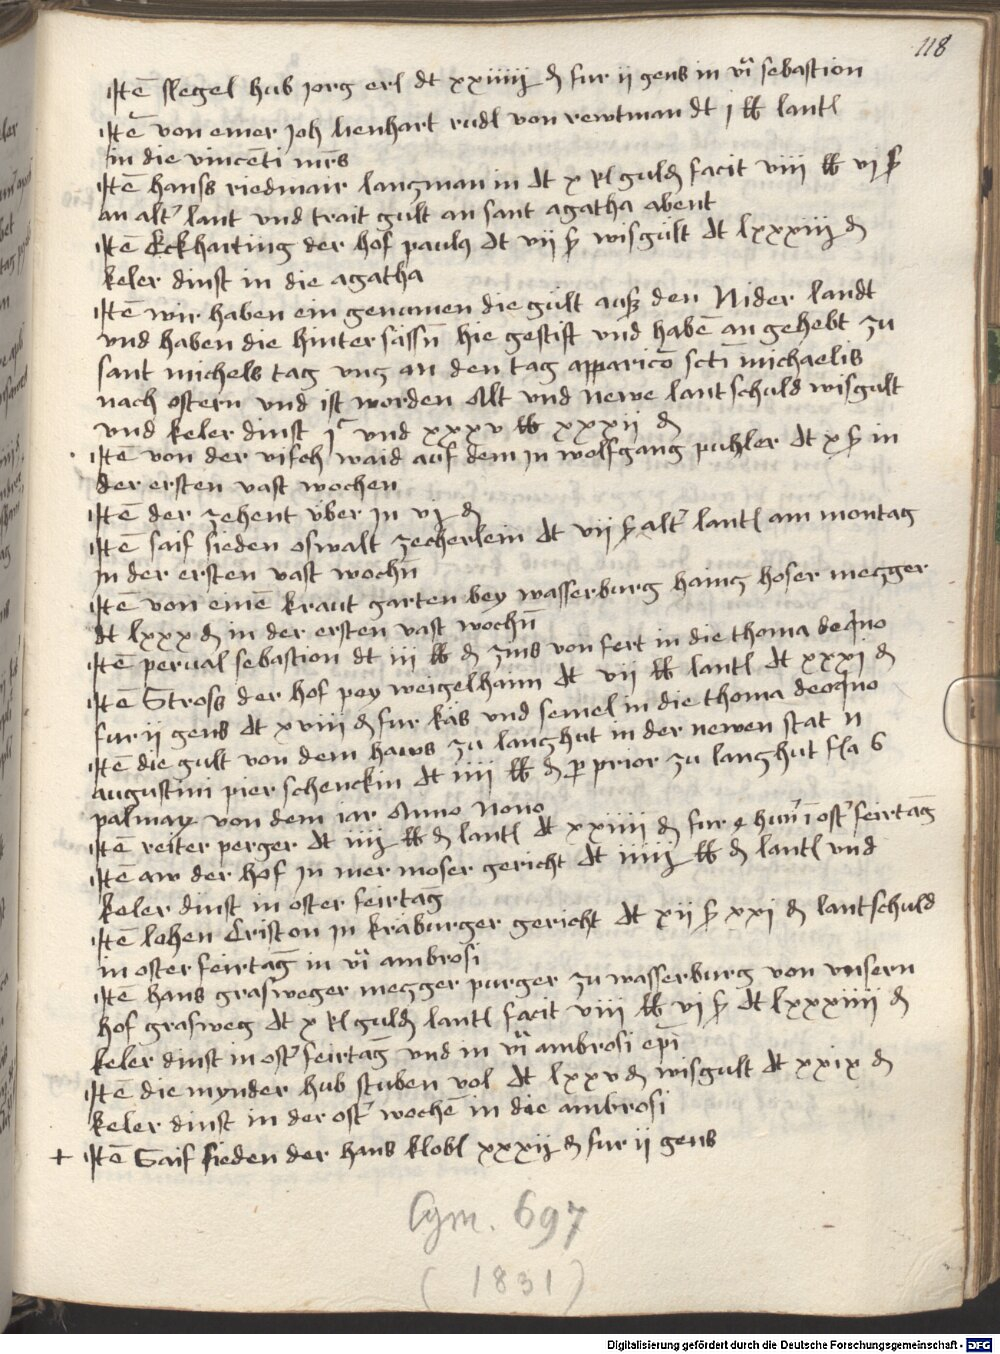 118
Itē slegel hub jorg erl dt xxiiiij ₰ fur ij gens in vĩ sebastion
Itē von einer joh lienhart rudl von rewtman dt j lb lantl
in die vincēti mr̄s
Itē hanss riedmair langman in dt x rl guld facit viii lb vj ß
an alt' lant und trait gult an sant agatha abent
Itē Eckharting der hof paulꝯ dt vii ß wisgült dt lxxxiiij ₰
keler dinst in die agatha
Itē wir haben ein genumen die gult auß den Nider landt
und haben die hinter sässn̄ hie gestift und habē an gehebt zu
sant michels tag untz an den tag apparicō scti michaelis
nach ostern und ist worden Alt und newe lantschuld wisgult
und keler dinst jᶜ und xxxv lb xxxij ₰
Itē von der visch waid auf dem jn wolfgang puhler dt x ß in
der ersten vast wochen
Itē der zehent über jn vj ₰
Itē saif sieden oswalt zecherlein dt vii ß alt' lantl am montag
in der ersten vast wochn̄
Itē von einē kraut garten bey wasserburg haintz hoser metzger
dt lxxx ₰ in der ersten vast wochn̄
Itē perual sebastion dt iii lb ₰ zins von fert in die thoma de aqno
Itē Stross der hof pey weigelhaim dt vii lb lantl dt xxxj ₰
fur ij gens dt xviii ₰ fur käs und semel in die thoma de aqno
Itē die gult von dem haws zu lanczhut in der newen stat n
augustini pier schenckin dt iiij lb ₰ p prior zu lanczhut fla 6
palmaꝝ von dem iar Anno Nono
Itē reiter perger dt iiij lb ₰ lantl dt xxiiii ₰ fur 4 hun' ī ost' feirtāg
Itē aw der hof jn mermoser gericht dt iiiij lb ₰ lantl und
keler dinst in oster feirtāg
Itē lehen Criston jn kraburger gericht dt xii ß xxj ₰ lantschuld
in oster feirtāg in vĩ ambrosi
Itē hans grasweger metzger purger zu wasserburg von unsern
hof grasweg dt x rl guld lantl facit viii lb vj ß dt lxxxiiii ₰
keler dinst in ost' feirtāg und in vĩ ambrosi epi
Itē die mynder hub stuben vol dt lxxv ₰ wisgult dt xxix ₰
keler dinst in der ost' wochē in die ambrosi
+ Itē Saif sieden der hans klobl xxxij ₰ fur ij gens
Cgm. 697
(1831)
Digitalisierung gefördert durch die Deutsche Forschungsgemeinschaft - DFG